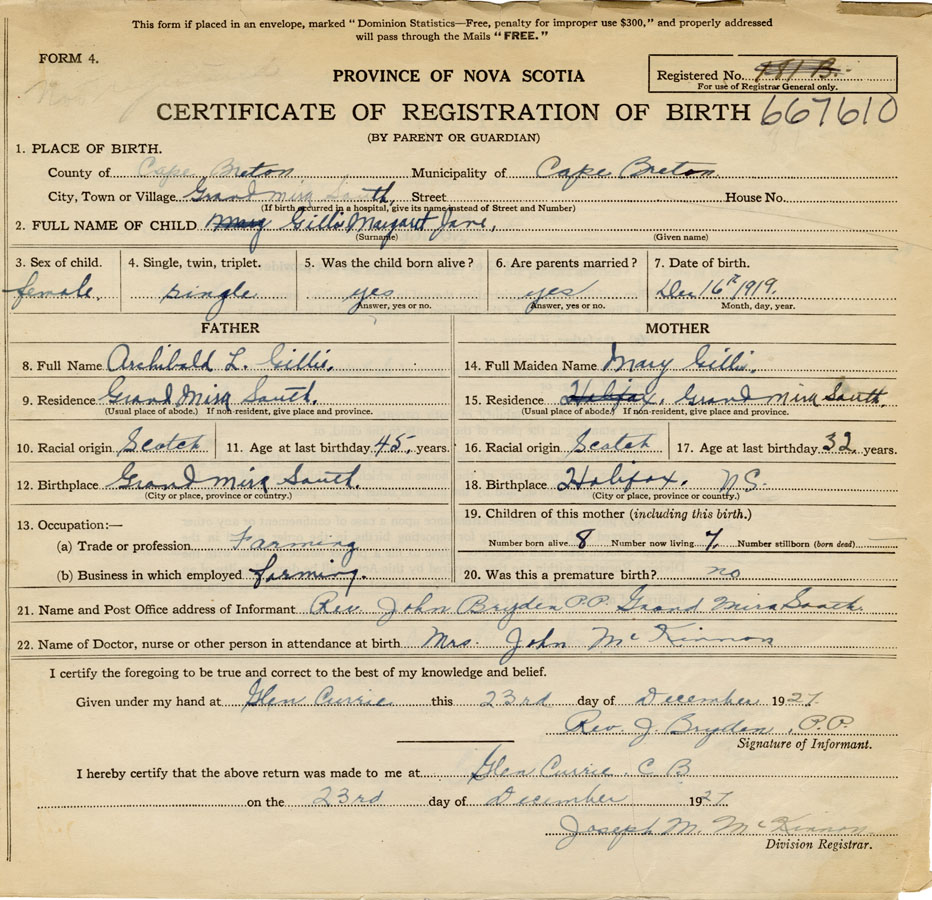 This form if placed in an envelope, marked "Dominion Statistics—Free, penalty for improper use $300," and properly addressed
will pass through the Mails "FREE."
FORM 4.
PROVINCE OF NOVA SCOTIA
Registered No. 481 B.
For use of Registrar General only.
CERTIFICATE OF REGISTRATION OF BIRTH 667610
(BY PARENT OR GUARDIAN)
1. PLACE OF BIRTH.
County of Cape Breton Municipality of Cape Breton
City, Town or Village Grand Mira South, Street House No.
(If birth occurred in a hospital, give its name instead of Street and Number)
2. FULL NAME OF CHILD Mary Gillis Margaret Jane,
(Surname) (Given name)
3. Sex of child. 4. Single, twin, triplet. 5. Was the child born alive? 6. Are parents married? 7. Date of birth.
female. single yes yes Dec 16th 1919.
Answer, yes or no. Answer, yes or no. Month, day, year.
FATHER MOTHER
8. Full Name Archibald L. Gillis. 14. Full Maiden Name Mary Gillis.
9. Residence Grand Mira South. 15. Residence Halifax, Grand Mira South.
(Usual place of abode.) If non-resident, give place and province. (Usual place of abode.) If non-resident, give place and province.
10. Racial origin Scotch 11. Age at last birthday 45. years. 16. Racial origin Scotch 17. Age at last birthday 32 years.
12. Birthplace Grand Mira South. 18. Birthplace Halifax. N.S.
(City or place, province or country.) (City or place, province or country.)
13. Occupation:— 19. Children of this mother (including this birth.)
(a) Trade or profession Farming Number born alive 8 Number now living 7. Number stillborn (born dead) —
(b) Business in which employed farming. 20. Was this a premature birth? no
21. Name and Post Office address of Informant Rev. John Bryden P.P. Grand Mira South.
22. Name of Doctor, nurse or other person in attendance at birth Mrs. John McKinnon
I certify the foregoing to be true and correct to the best of my knowledge and belief.
Given under my hand at Glen Currie this 23rd day of December 1927.
Rev. J. Bryden, P.P.
Signature of Informant.
I hereby certify that the above return was made to me at Glen Currie. C B
on the 23rd day of December 1927
Joseph M. McKinnon
Division Registrar.